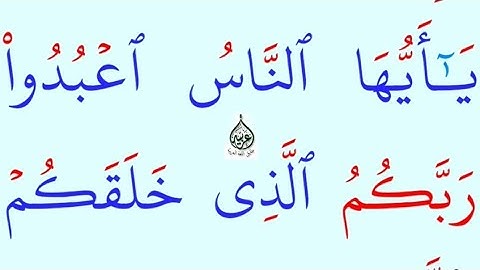 يَـٰٓأَيُّهَا ٱلنَّاسُ ٱعْبُدُوا۟
رَبَّكُمُ ٱلَّذِى خَلَقَكُمْ